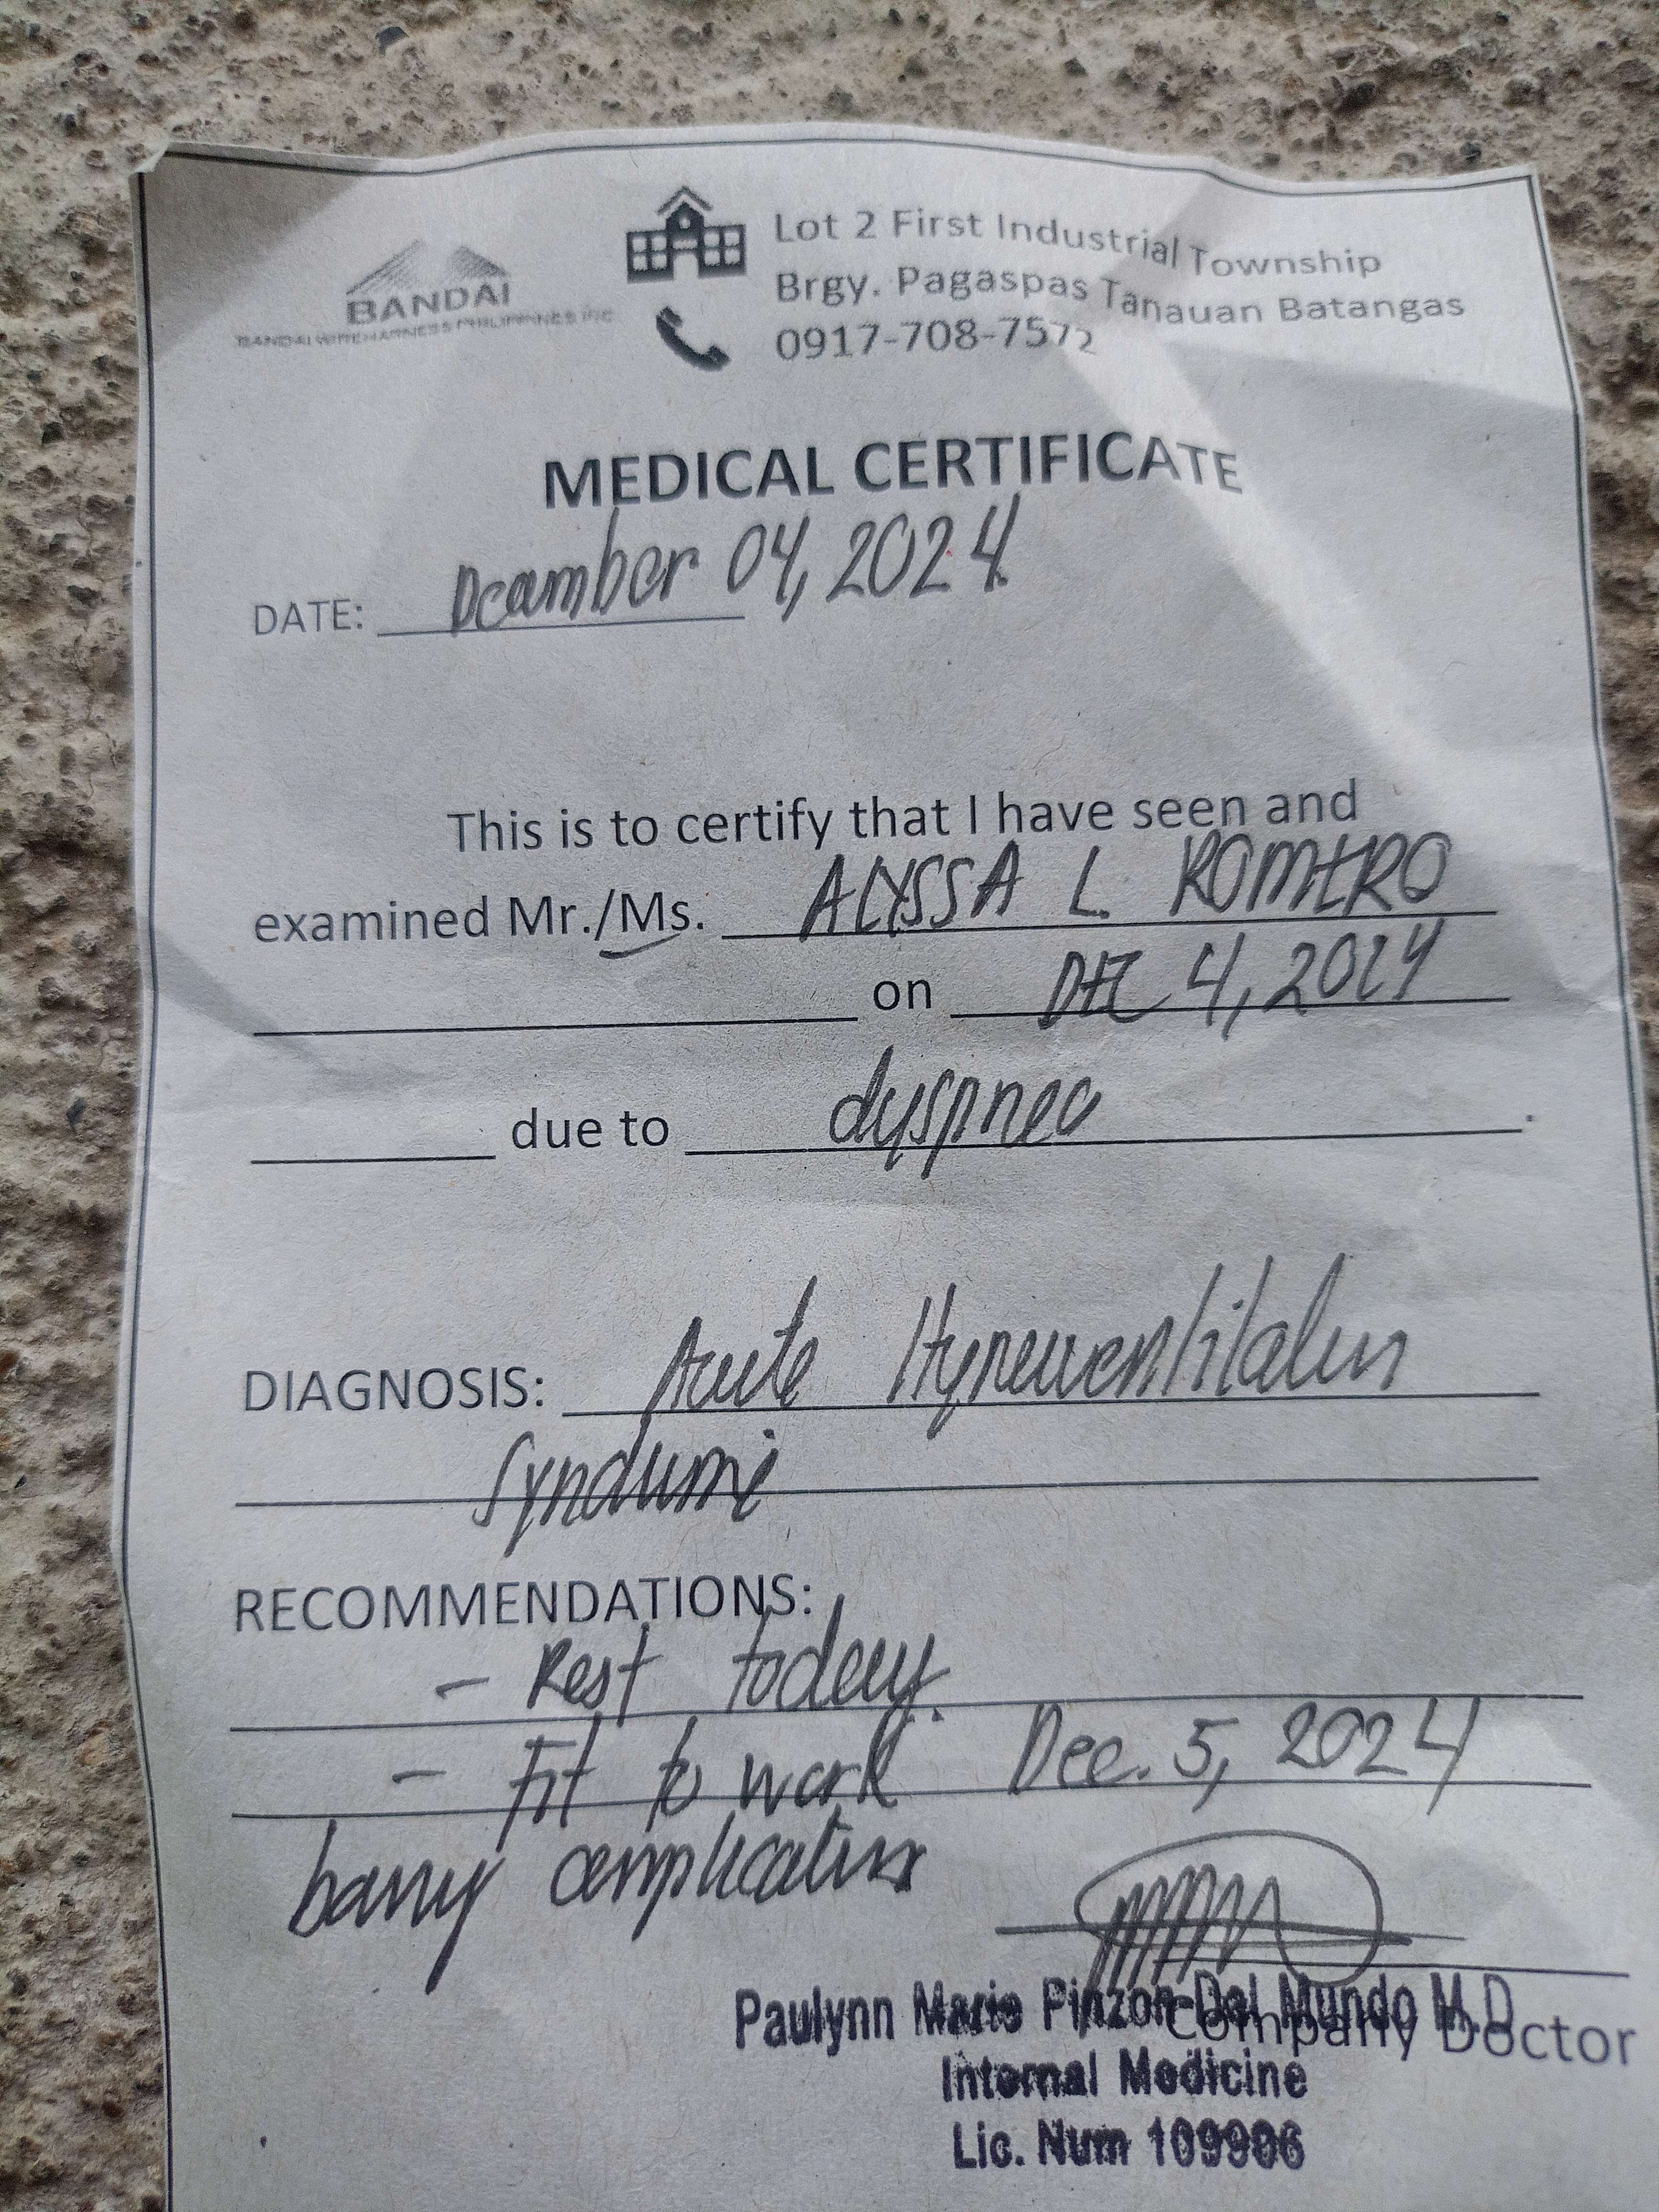 BANDAI
BANDAI WIREHARNESS PHILIPPINES INC
Lot 2 First Industrial Township
Brgy. Pagaspas Tanauan Batangas
0917-708-7572
MEDICAL CERTIFICATE
DATE: December 04, 2024
This is to certify that I have seen and
examined Mr./Ms. ALYSSA L. ROMERO
on DEC 4, 2024
due to dyspnea.
DIAGNOSIS: Acute Hyperventilation
Syndrome
RECOMMENDATIONS:
- Rest today.
- Fit to work Dec. 5, 2024
barring complications
Paulynn Marie Pinzon-Del Mundo M.D
Company Doctor
Internal Medicine
Lic. Num 109906